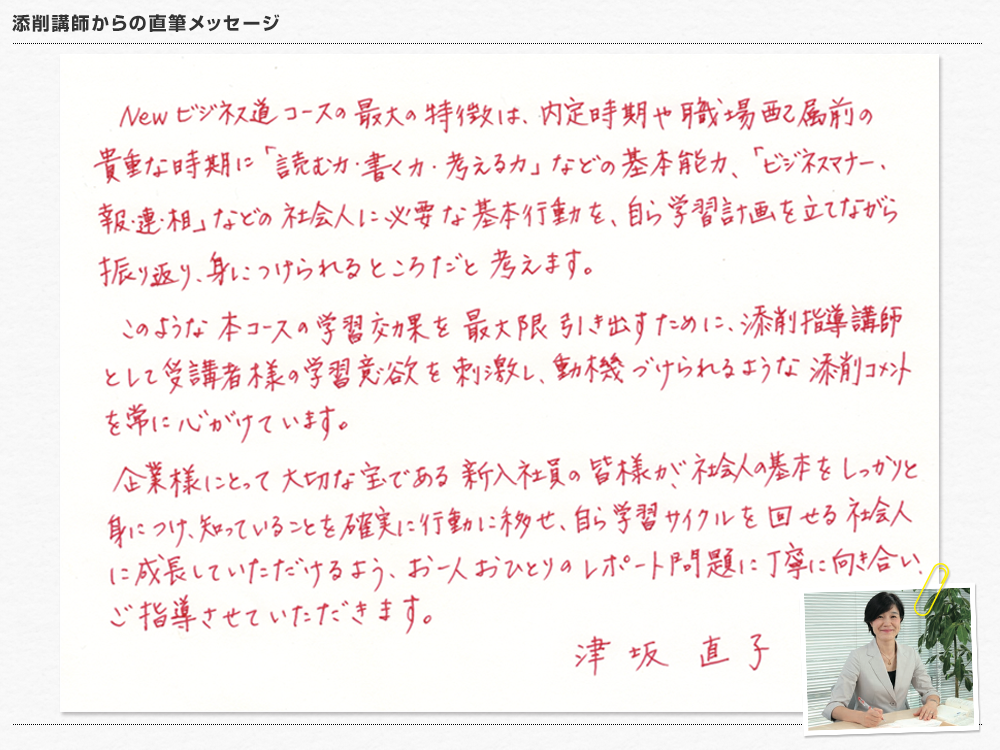 添削講師からの直筆メッセージ
Newビジネス道コースの最大の特徴は、内定時期や職場配属前の
貴重な時期に「読む力・書く力・考える力」などの基本能力、「ビジネスマナー、
報・連・相」などの社会人に必要な基本行動を、自ら学習計画を立てながら
振り返り、身につけられるところだと考えます。
このような本コースの学習効果を最大限引き出すために、添削指導講師
として受講者様の学習意欲を刺激し、動機づけられるような添削コメント
を常に心がけています。
企業様にとって大切な宝である新入社員の皆様が、社会人の基本をしっかりと
身につけ、知っていることを確実に行動に移せ、自ら学習サイクルを回せる社会人
に成長していただけるよう、お一人おひとりのレポート問題に丁寧に向き合い、
ご指導させていただきます。
津坂 直子